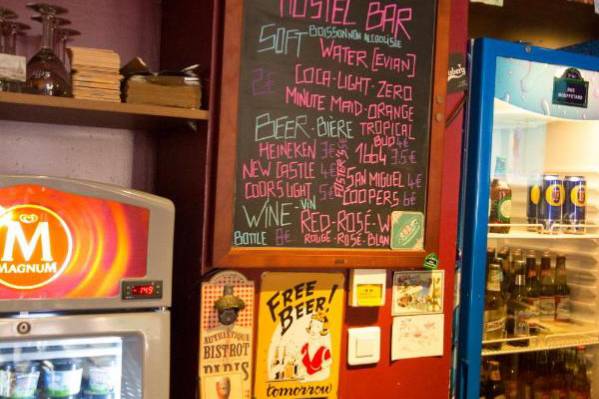 HOSTEL BAR
SOFT BOISSON NON ALCOOLISÉE
WATER [EVIAN]
2€ COCA-LIGHT-ZERO
MINUTE MAID-ORANGE
TROPICAL
BEER-BIÈRE
BUD 4€
HEINEKEN 3€
1664 3.5€
NEW CASTLE 4€
SAN MIGUEL 4€
COORS LIGHT 5€
COOPERS 6€
FOSTER'S
WINE-VIN
RED-ROSÉ-W
BOTTLE 8€ ROUGE-ROSÉ-BLAN
M
MAGNUM
AUTHENTIQUE
BISTROT
PARIS
FREE
BEER!
tomorrow
RUE
MOUFFETARD